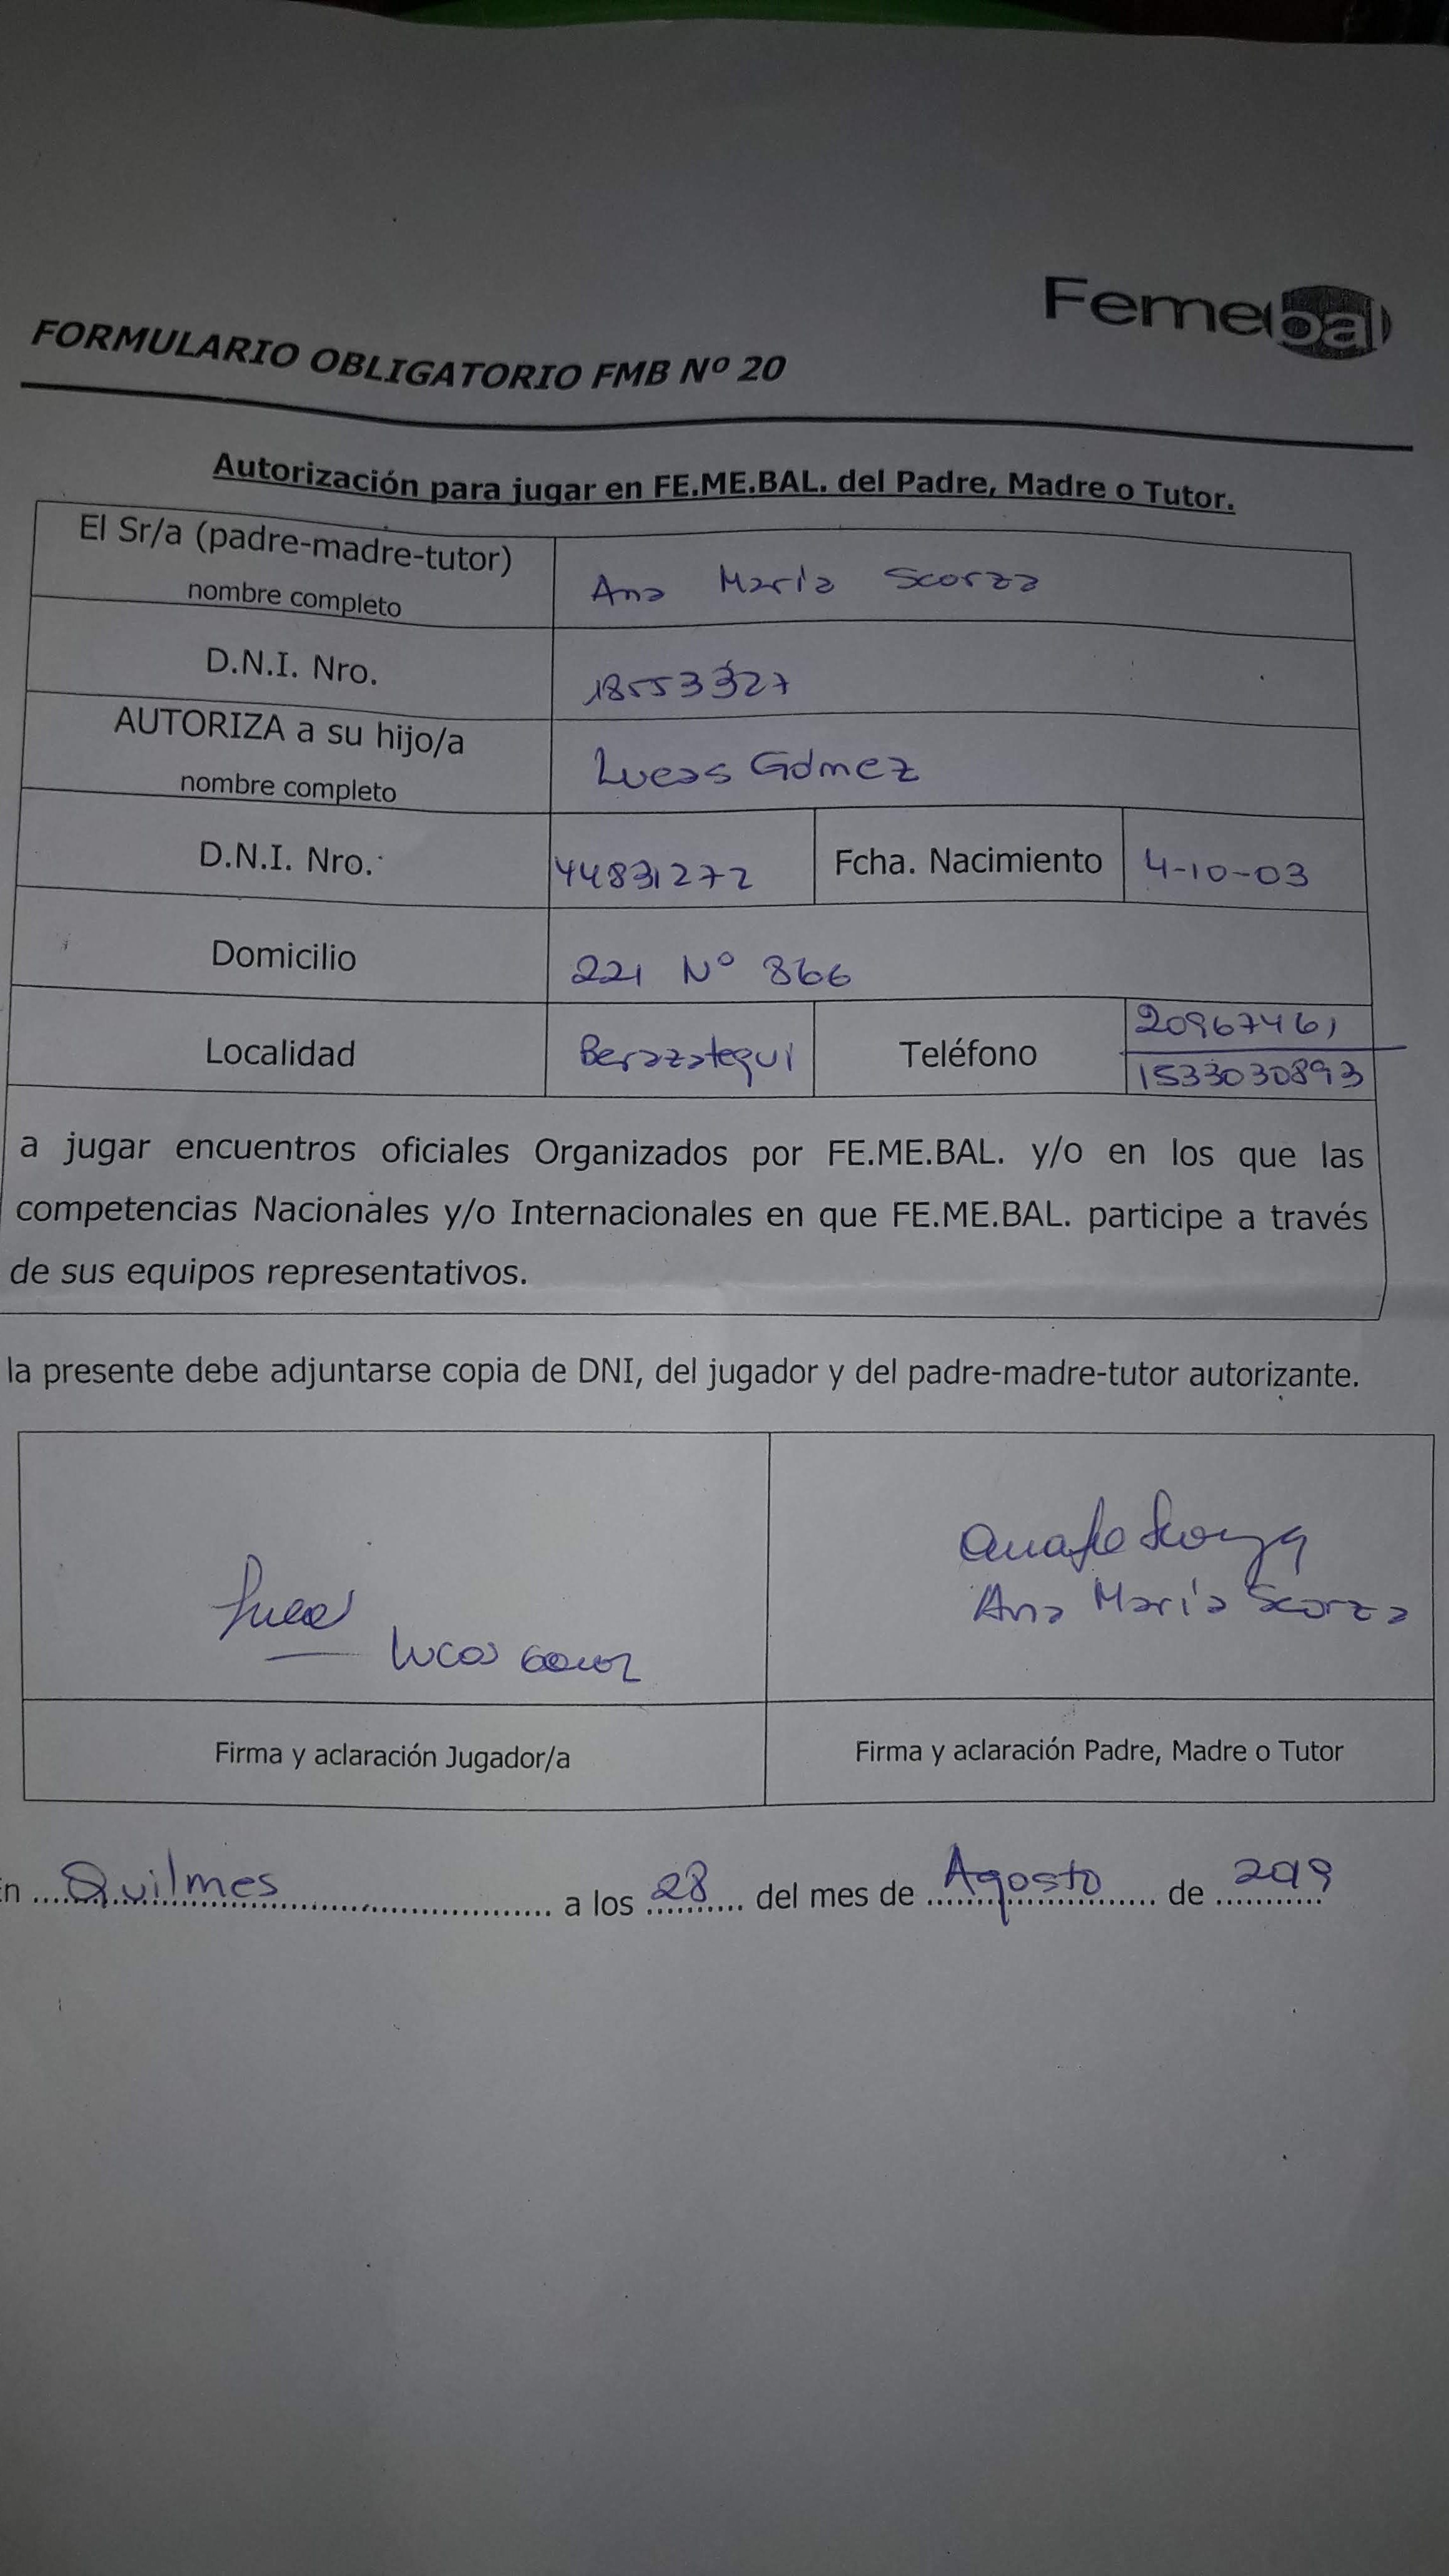 Femebal
FORMULARIO OBLIGATORIO FMB Nº 20
Autorización para jugar en FE.ME.BAL. del Padre, Madre o Tutor.
El Sr/a (padre-madre-tutor)
nombre completo
Ana María Scorza
D.N.I. Nro.
18553327
AUTORIZA a su hijo/a
nombre completo
Lucas Gómez
D.N.I. Nro.
44831272
Fcha. Nacimiento
4-10-03
Domicilio
221 Nº 366
Localidad
Berazategui
Teléfono
20967461
1533030893
a jugar encuentros oficiales Organizados por FE.ME.BAL. y/o en los que las
competencias Nacionales y/o Internacionales en que FE.ME.BAL. participe a través
de sus equipos representativos.
la presente debe adjuntarse copia de DNI, del jugador y del padre-madre-tutor autorizante.
Lucas
Lucas Gomez
Scorza
Ana María Scorza
Firma y aclaración Jugador/a
Firma y aclaración Padre, Madre o Tutor
En Quilmes a los 28 del mes de Agosto de 2019